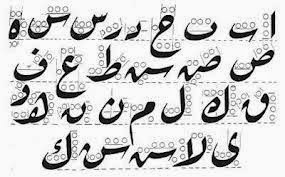 ا ب ت ح د ر س س ه
ص ص س ط ع ف
ق ك ل م ن ن ه و
ى لا س س ك